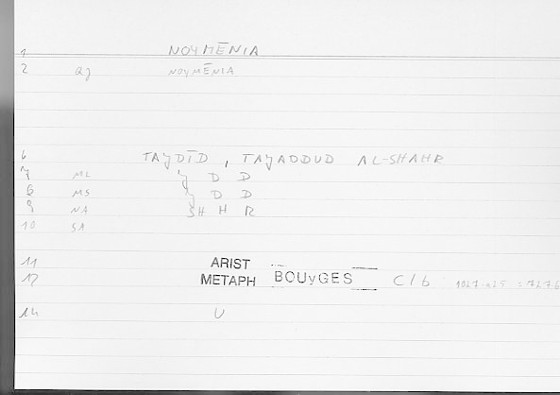 1 NOYMĒNIA
2 aj NOYMĒNIA
6 TAJDĪD , TAJADDUD AL-SHAHR
7 ML J D D
8 MS J D D
9 NA SH H R
10 SA
11 ARIST
12 METAPH BOUyGES C/b 1027
14 U